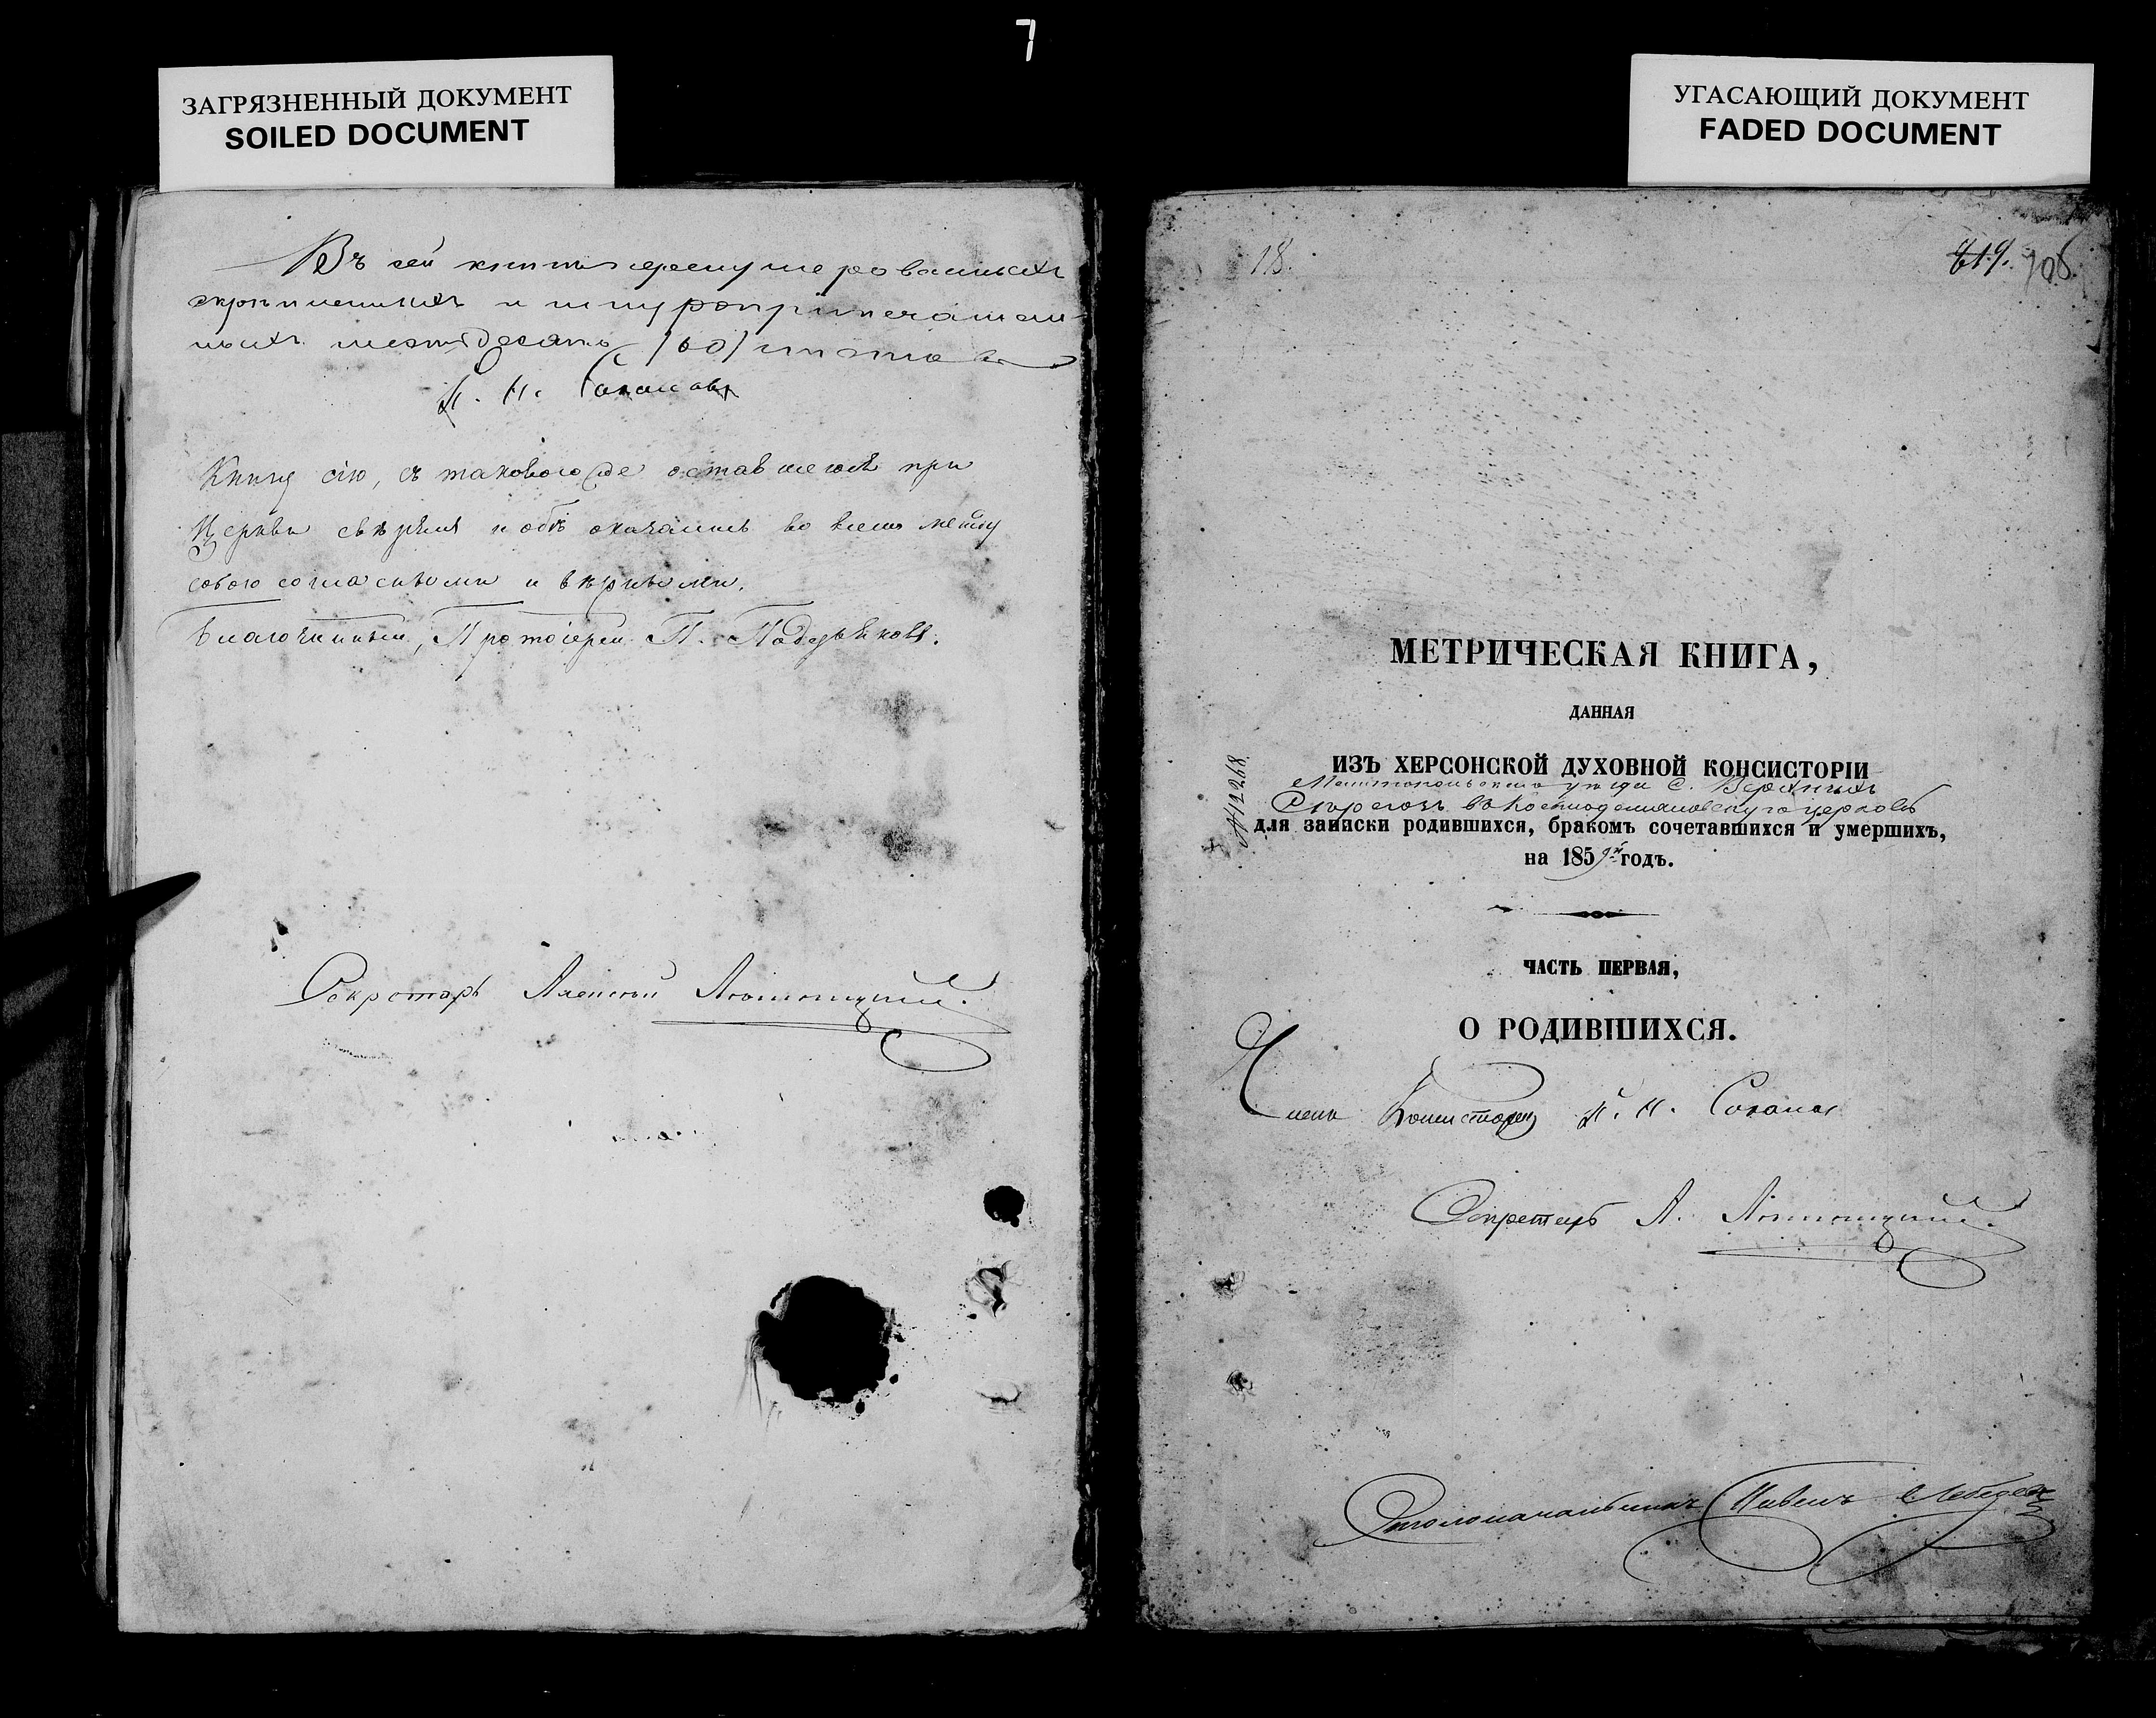 7
ЗАГРЯЗНЕННЫЙ ДОКУМЕНТ
SOILED DOCUMENT
Въ сей книгѣ перенумерованныхъ
скрѣпленныхъ и шнуроприпечатан-
ныхъ шестьдесятъ /60/ листовъ
Книгу сію, съ таковою же оставшеюся при
Церкви свѣрялъ и обѣ оказались во всемъ между
собою согласными и вѣрными.
Благочинный, Протоіерей П.
Секретарь Алексей
УГАСАЮЩИЙ ДОКУМЕНТ
FADED DOCUMENT
18.
МЕТРИЧЕСКАЯ КНИГА,
ДАННАЯ
ИЗЪ ХЕРСОНСКОЙ ДУХОВНОЙ КОНСИСТОРІИ
Мелитопольскаго уѣзда С. Верхнихъ
Сирогозъ въ Космодемиановскую церковь
для записки родившихся, бракомъ сочетавшихся и умершихъ,
на 1859й годъ.
ЧАСТЬ ПЕРВАЯ,
О РОДИВШИХСЯ.
Членъ Консисторіи
Секретарь А.
Столоначальникъ Лебедевъ